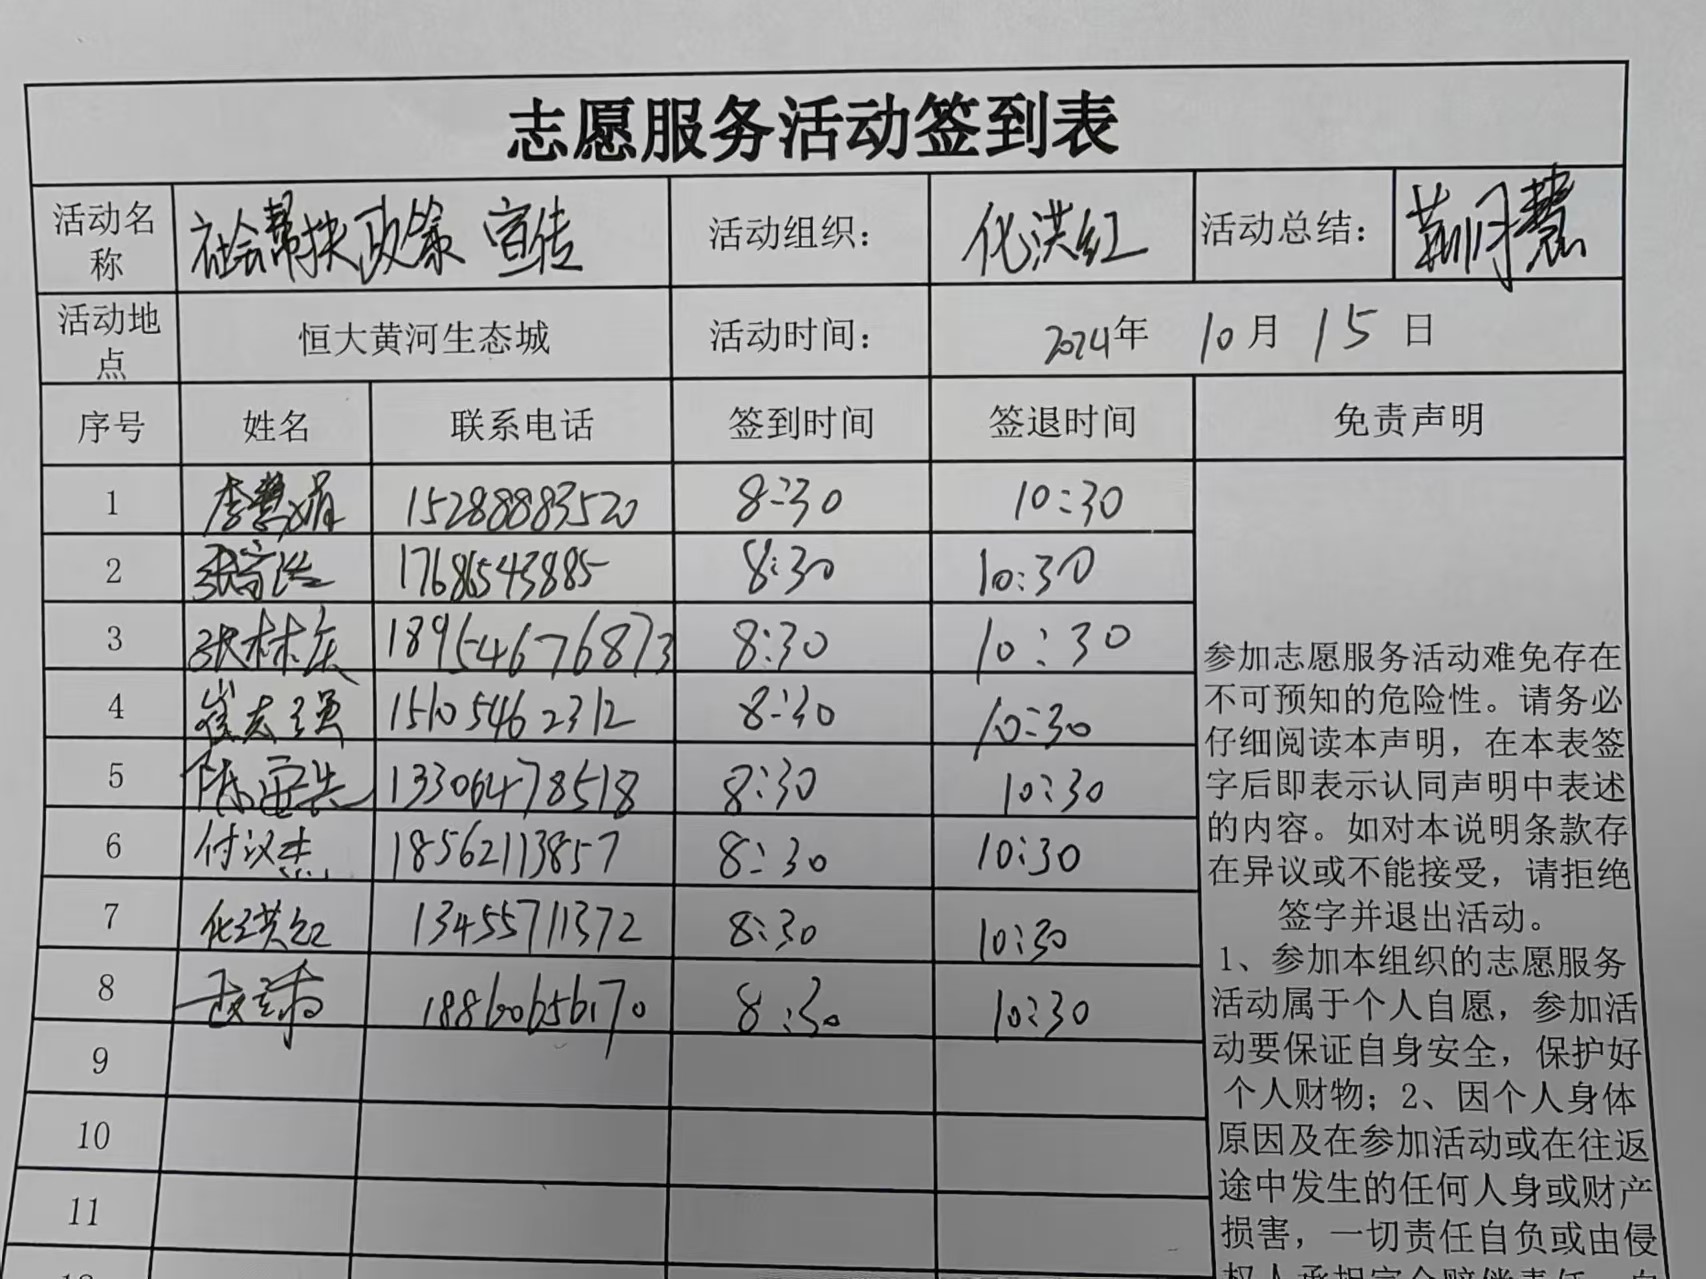 志愿服务活动签到表
活动名称 社会帮扶政策 宣传 活动组织： 化洪红 活动总结： 荆月慧
活动地点 恒大黄河生态城 活动时间： 2024年 10月 15日
序号 姓名 联系电话 签到时间 签退时间 免责声明
1 李慧娟 15288883520 8:30 10:30
2 17686543885 8:30 10:30
3 张林庆 18954676873 8:30 10:30
4 崔志强 15105462312 8:30 10:30
5 13306478518 8:30 10:30
6 付议杰 18562113857 8:30 10:30
7 化洪红 13455711372 8:30 10:30
8 18860656170 8:30 10:30
9
10
11
参加志愿服务活动难免存在
不可预知的危险性。请务必
仔细阅读本声明，在本表签
字后即表示认同声明中表述
的内容。如对本说明条款存
在异议或不能接受，请拒绝
签字并退出活动。
1、参加本组织的志愿服务
活动属于个人自愿，参加活
动要保证自身安全，保护好
个人财物；2、因个人身体
原因及在参加活动或在往返
途中发生的任何人身或财产
损害，一切责任自负或由侵